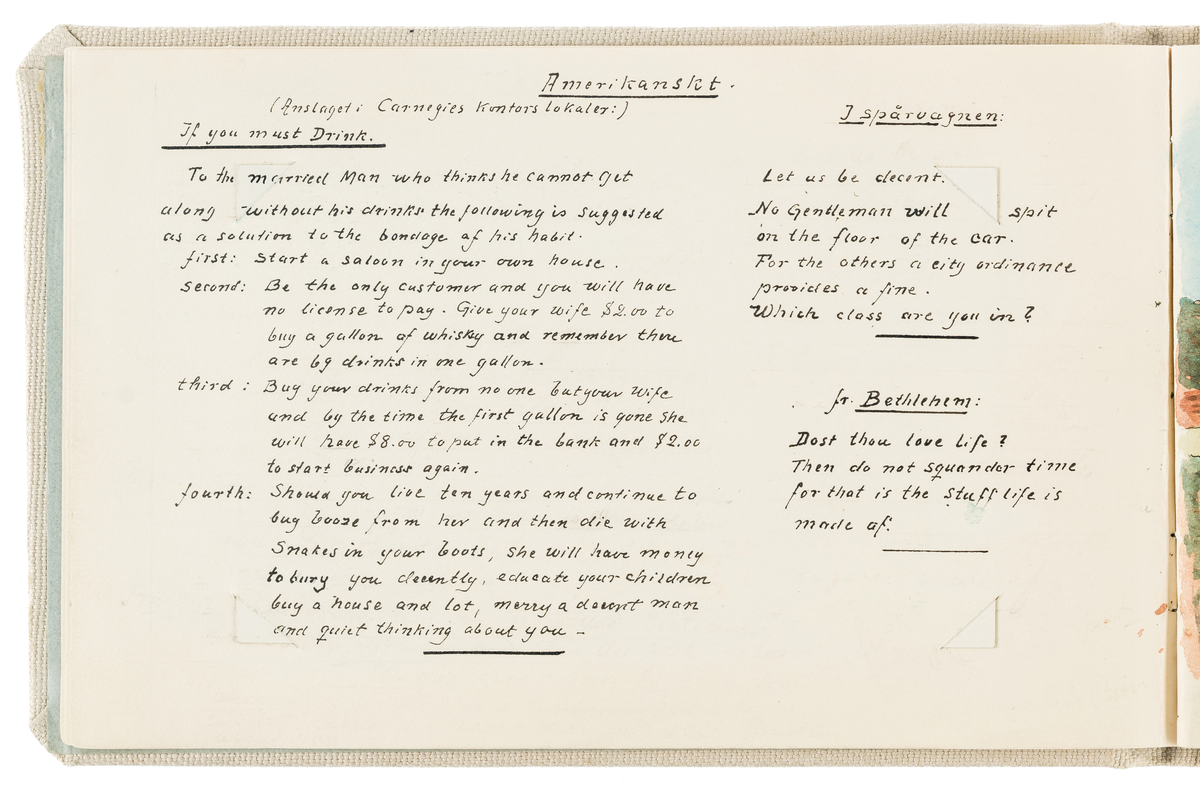 Amerikanskt.
(Anslaget i Carnegies kontors lokaler:)
If you must Drink.
To the married Man who thinks he cannot get
along without his drinks the following is suggested
as a solution to the bondage of his habit.
first: Start a saloon in your own house.
second: Be the only customer and you will have
no license to pay. Give your wife $2.00 to
buy a gallon of whisky and remember there
are 69 drinks in one gallon.
third: Buy your drinks from no one but your wife
and by the time the first gallon is gone she
will have $8.00 to put in the bank and $2.00
to start business again.
fourth: Should you live ten years and continue to
buy booze from her and then die with
Snakes in your boots, she will have money
to bury you decently, educate your children
buy a house and lot, merry a decent man
and quiet thinking about you –
I spårvagnen:
Let us be decent.
No Gentleman will spit
on the floor of the car.
For the others a city ordinance
provides a fine.
Which class are you in?
fr. Bethlehem:
Dost thou love life?
Then do not squander time
for that is the stuff life is
made of.